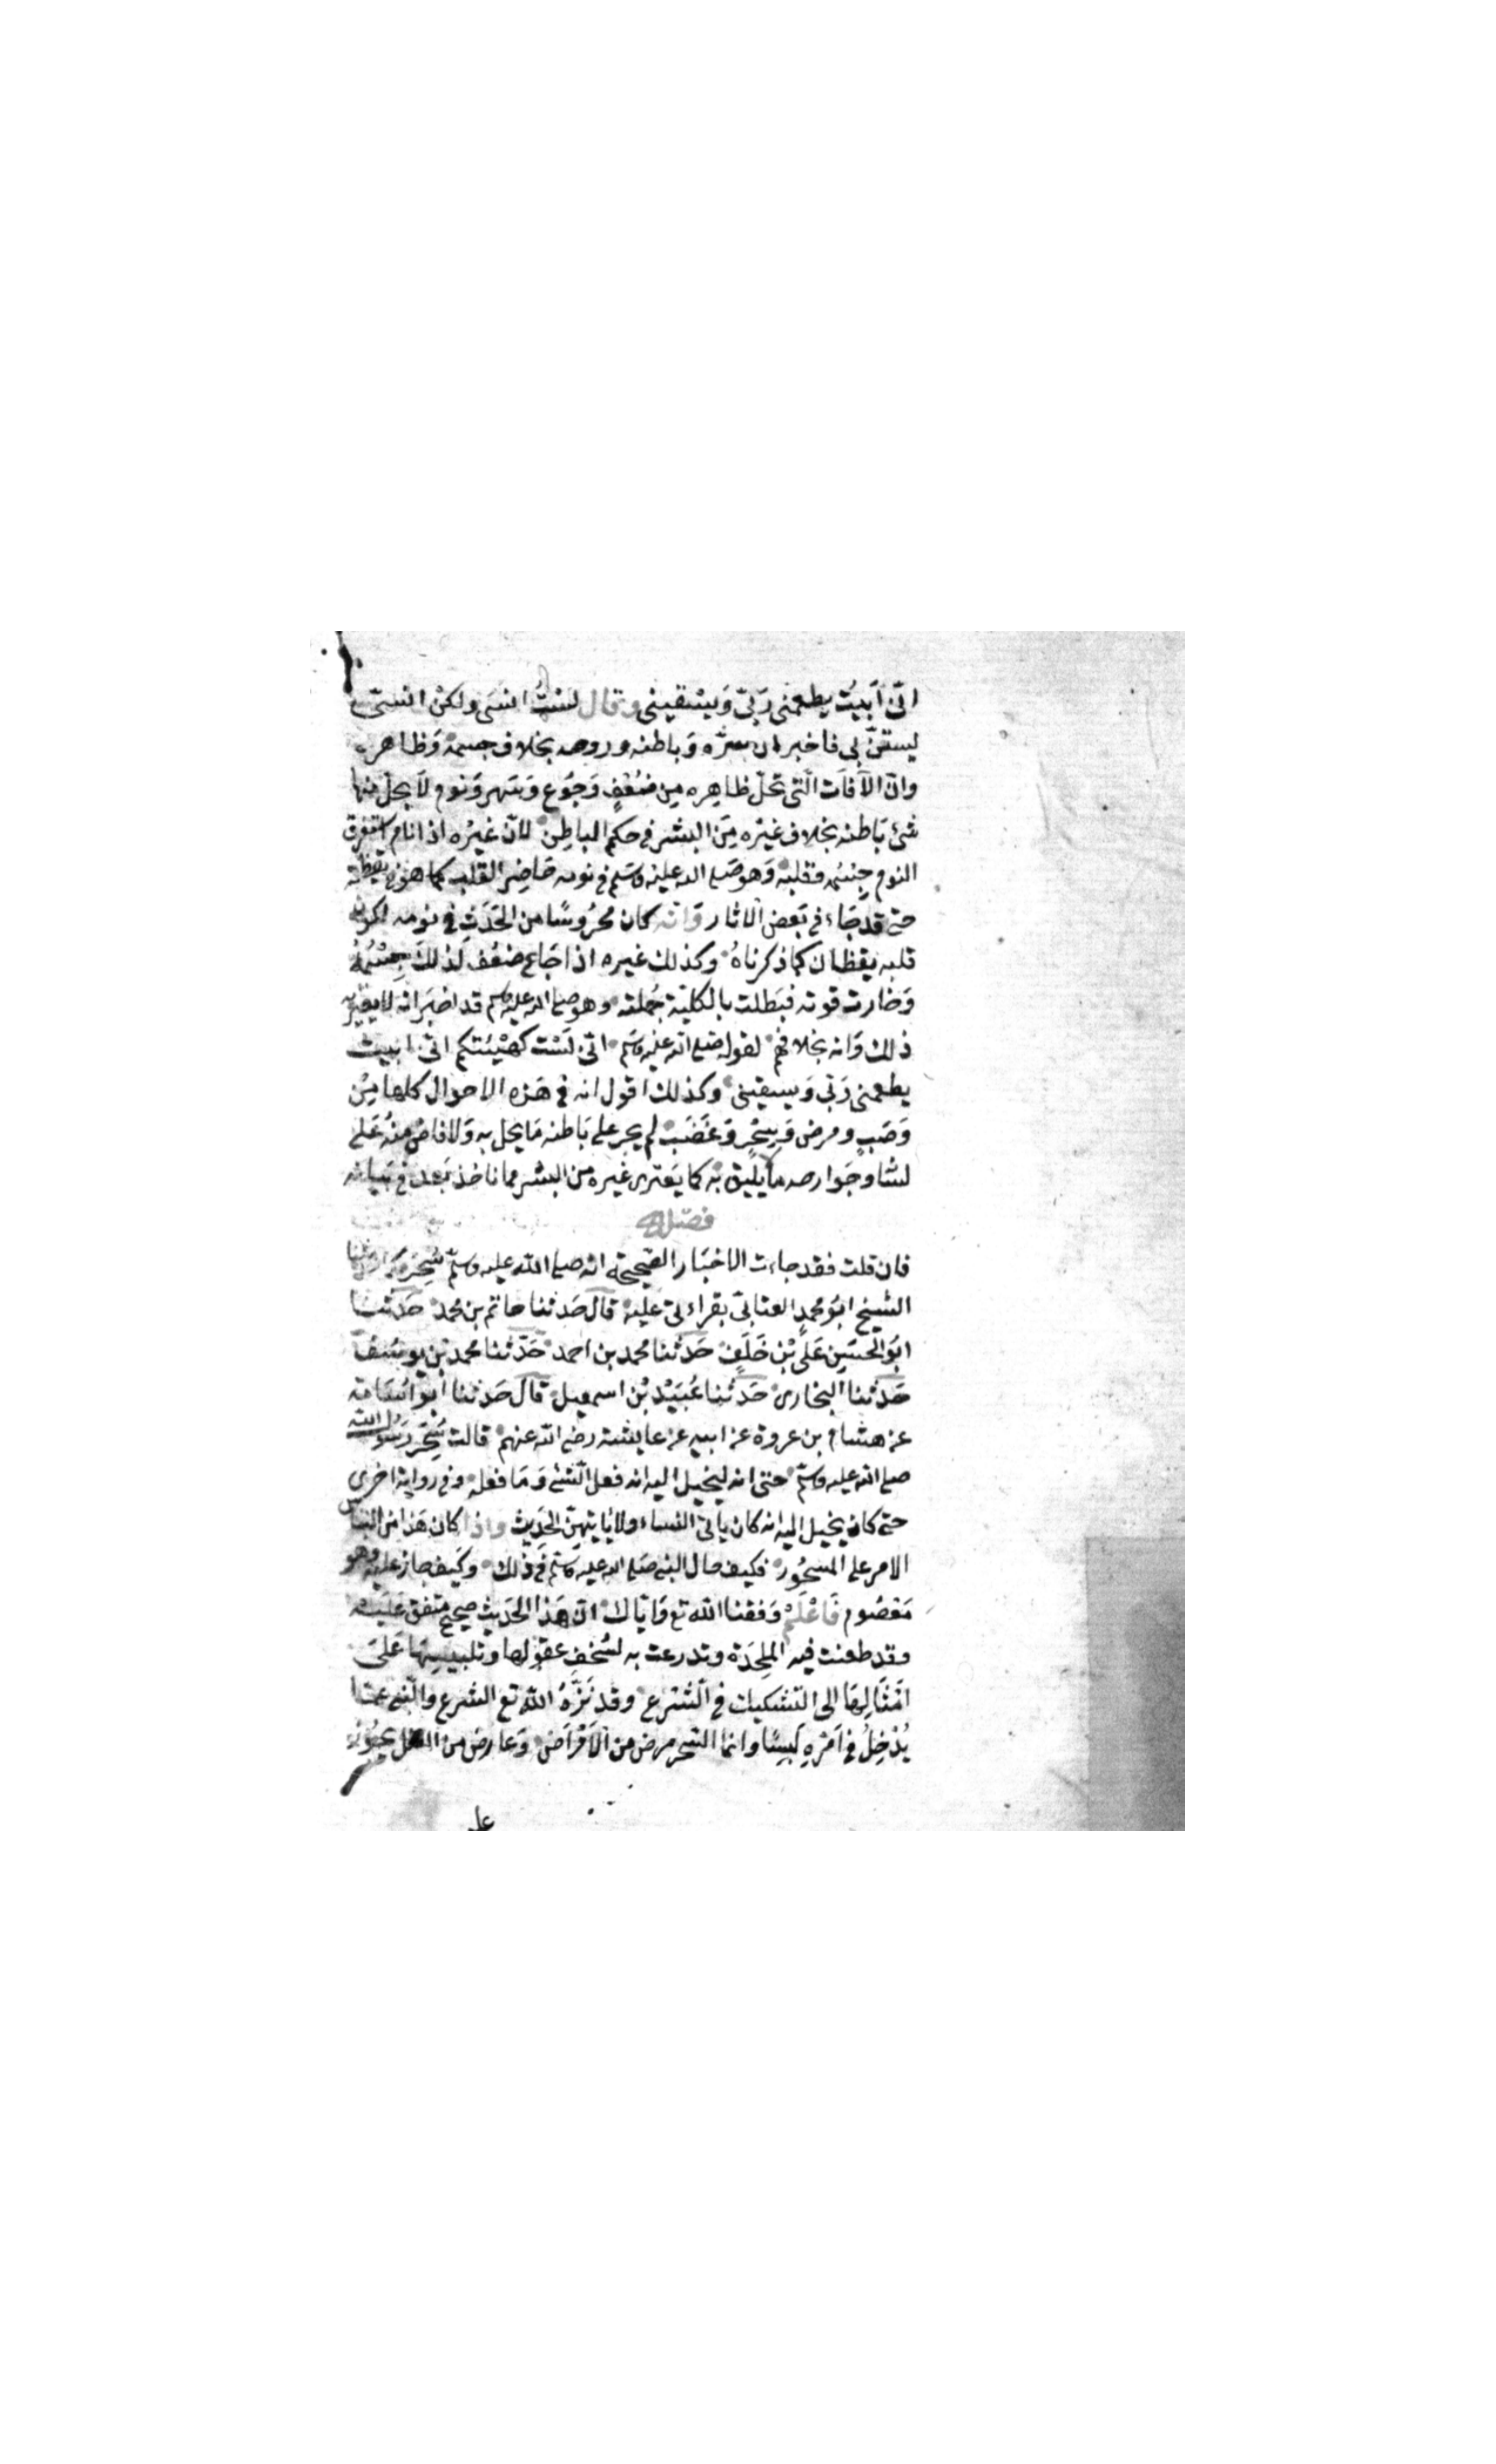 انّى اَبيْتُ يطعمنى رَبّى وَيسْقينى وقال لسْتُ انسَى ولكنْ انسىّ
ليستنّ بى فاخبر ان سرّه وَباطنه وروحه بخلاف جسمه وَظاهره
وانّ الآفاَت الّتى تحلّ ظاهره مِن ضُعْفٍ وَجَوع وَسَهر وَنوم لاَ يحلّ منها
شئ بَاطنه بخلاف غيرْه مِنَ البشر فى حكم الباطِن لانّ غيرْه اذا نام استغرق
النوم جسْمه وقلبه وَهو صَلى الله عليه وسَلم فى نومه حَاضِر القلب كما هو فى يقظته
حتى قد جَاء فى بَعض الاثار وَانّه كان محْرُوسًا من الحَدَثِ فى نومه لكون
قلبه يقظان كما ذكرناهُ وكذلك غيره اذا جَاع ضعُف لذلكَ جسْمُهُ
وَخارت قوته فبَطلت بالكليّة جُملته وهو صلى الله عليه وسلم قد اخبَر انه لا يعتريه
ذلك وَانه بخلافهم لقوله صَلى الله عليه وسَلم انّى لَسْت كهيْئتكم انّى ابيت
يطعمنى رَبّى وَيسقينى وكذلك اقول انه فى هَذه الاحوال كلها مِنْ
وَصَبٍ ومرض وَسِحْرٍ وَغَضَب لم يجر على بَاطنه مَا يحل به وَلا فاضَ منهُ عَلى
لسَا وجَوارحه ما يليق به كما يَعترى غيره من البشر مما ناخذ بَعد فى بَيانه
فصَل
فان قلت فقد جاءت الاخبَار الصّحيحَة انه صلى الله عليه وسلّم سُحِرَ كما حدثنا
الشيخ ابُو محمدٍ العتابىّ بقراءتى عَليه قالَ حَدثنا حاتم بن محمد حَدثنا
ابُو الحسَين عَلى بْن خَلَفٍ حَدثنا محمد بن احمد حَدّثنا محمد بْن يوسُفَ
حَدثنا البخارى حَدثنا عُبَيْد بْن اسمعيل قالَ حَدثنا ابو اُسَامة
عن هشام بن عروة عن ابيه عن عايشة رضى الله عنهم قالت سُحِرَ رَسُول الله
صلى الله عليه وسلّم حتىّ انه ليخيل اليه انه فعل الشئ وَمَا فعله وفى رواية اخرى
حتى كان يخيل اليه انه كان ياتى النساء ولا يَاتِيهِنّ الحَدِيث واذا كان هَذا من التباس
الامر على المسحُور فكيف حال النبى صَلى الله عليه وسَلم فى ذلك وكيف جاز عليه وهو
مَعصُوم فَاعْلَمْ وَفقنا الله تع وَايّاك انّ هَذا الحَديث صحيح متفق عَليْه
وقد طعنت فيه الملحِدَة وتدرعت به لسُخفِ عقولها وتلبيسِهَا عَلىَ
امْثَالِهَا الى التشكيك فى الشرع وقد نَزّهُ الله تع الشرع والنّبى عمّا
يُدْخِلُ فى اَمْرِهِ لَبسًا وانما السّحر مرض من الاَمْرَاض وَعارض من العلل يجُوزُ
على